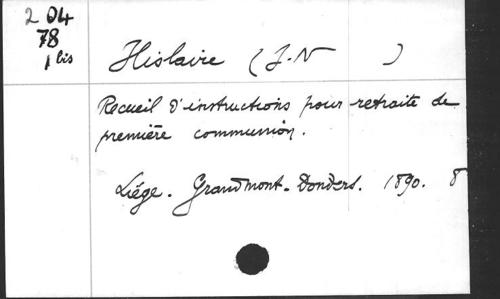 2 04
78
1 bis
Hislaire (J-N )
Recueil d'instructions pour retraite de
première communion.
Liége. Grandmont-Donders. 1890. 8